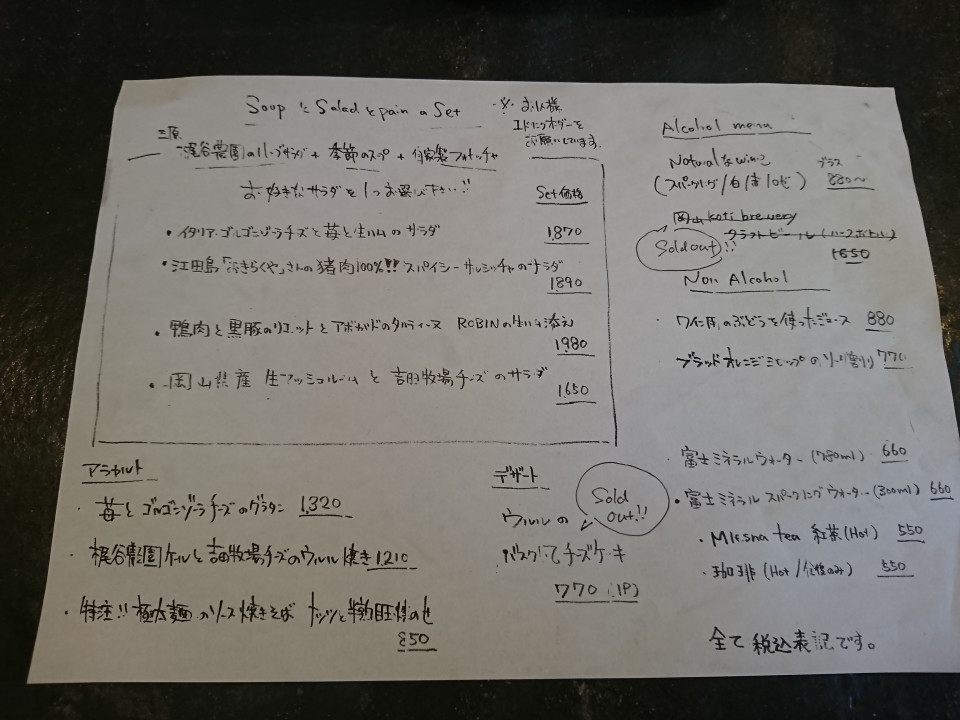 Soup と Salad と pain の Set
※ お1人様
1ドリンクオーダーを
お願いしています。
三原
梶谷農園のハーブサラダ + 季節のスープ + 自家製フォカッチャ
お好きなサラダを1つお選び下さい!!
Set価格
・イタリア・ゴルゴンゾーラチーズと苺と生ハムのサラダ
1,870
・江田島 さんの猪肉100%!! スパイシーサルシッチャのサラダ
1,890
・鴨肉と黒豚のリエットとアボカドのタルティーヌ ROBINの生ハム添え
1,980
・岡山県産 生マッシュルームと吉田牧場チーズのサラダ
1,650
アラカルト
・苺とゴルゴンゾーラチーズのグラタン 1,320
・梶谷農園ケールと吉田牧場チーズのウルル焼き 1,210
・特注!! 極太麺のソース焼きそば ナッツと半熟目玉焼のせ
850
デザート
Sold out!!
ウルルの
バスクチーズケーキ
770 (1P)
Alcohol menu
Naturalなwine
グラス
(スパークリング/白/赤/ロゼ) 880〜
岡山 koti brewery
クラフトビール (ハーフボトル)
Sold out!!
1650
Non Alcohol
・ワイン用のぶどうを使ったジュース 880
ブラッドオレンジシロップのソーダ割り 770
・富士ミネラルウォーター (780ml) 660
・富士ミネラルスパークリングウォーター (300ml) 660
・Mlesna tea 紅茶(Hot) 550
・珈琲 (Hot/食後のみ) 550
全て税込表記です。